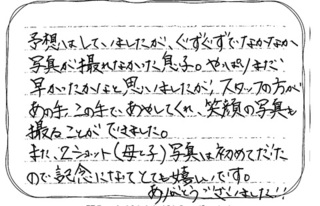 予想はしていましたが、ぐずぐずでなかなか
写真が撮れなかった息子。やっぱりまだ
早かったかなと思いましたが、スタッフの方が
あの手この手であやしてくれ、笑顔の写真も
撮ることができました。
また、2ショット(母と子)写真は初めてだった
ので記念になってとても嬉しいです。
ありがとうございました!!